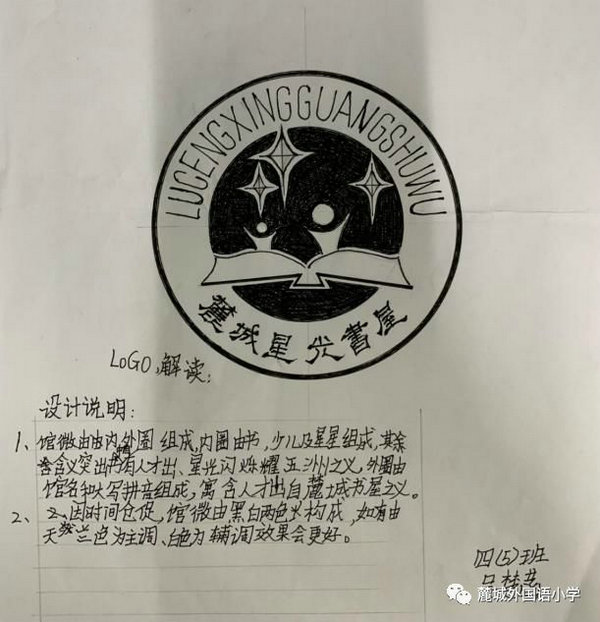 LUCENGXINGGUANGSHUWU
麓城星光書屋
LOGO解读:
设计说明:
1、馆微由由内外圈组成,内圈由书,少儿及星星组成,其余
含义突出书有人才出、星光闪烁耀五洲之义。外圈由
馆名和大写拼音组成,寓含人才出自麓城书屋之义。
2、因时间仓促,馆微由黑白两色构成,如有由
天兰色为主调、白色为辅调效果会更好。
四(5)班
吕梦
麓城外国语小学